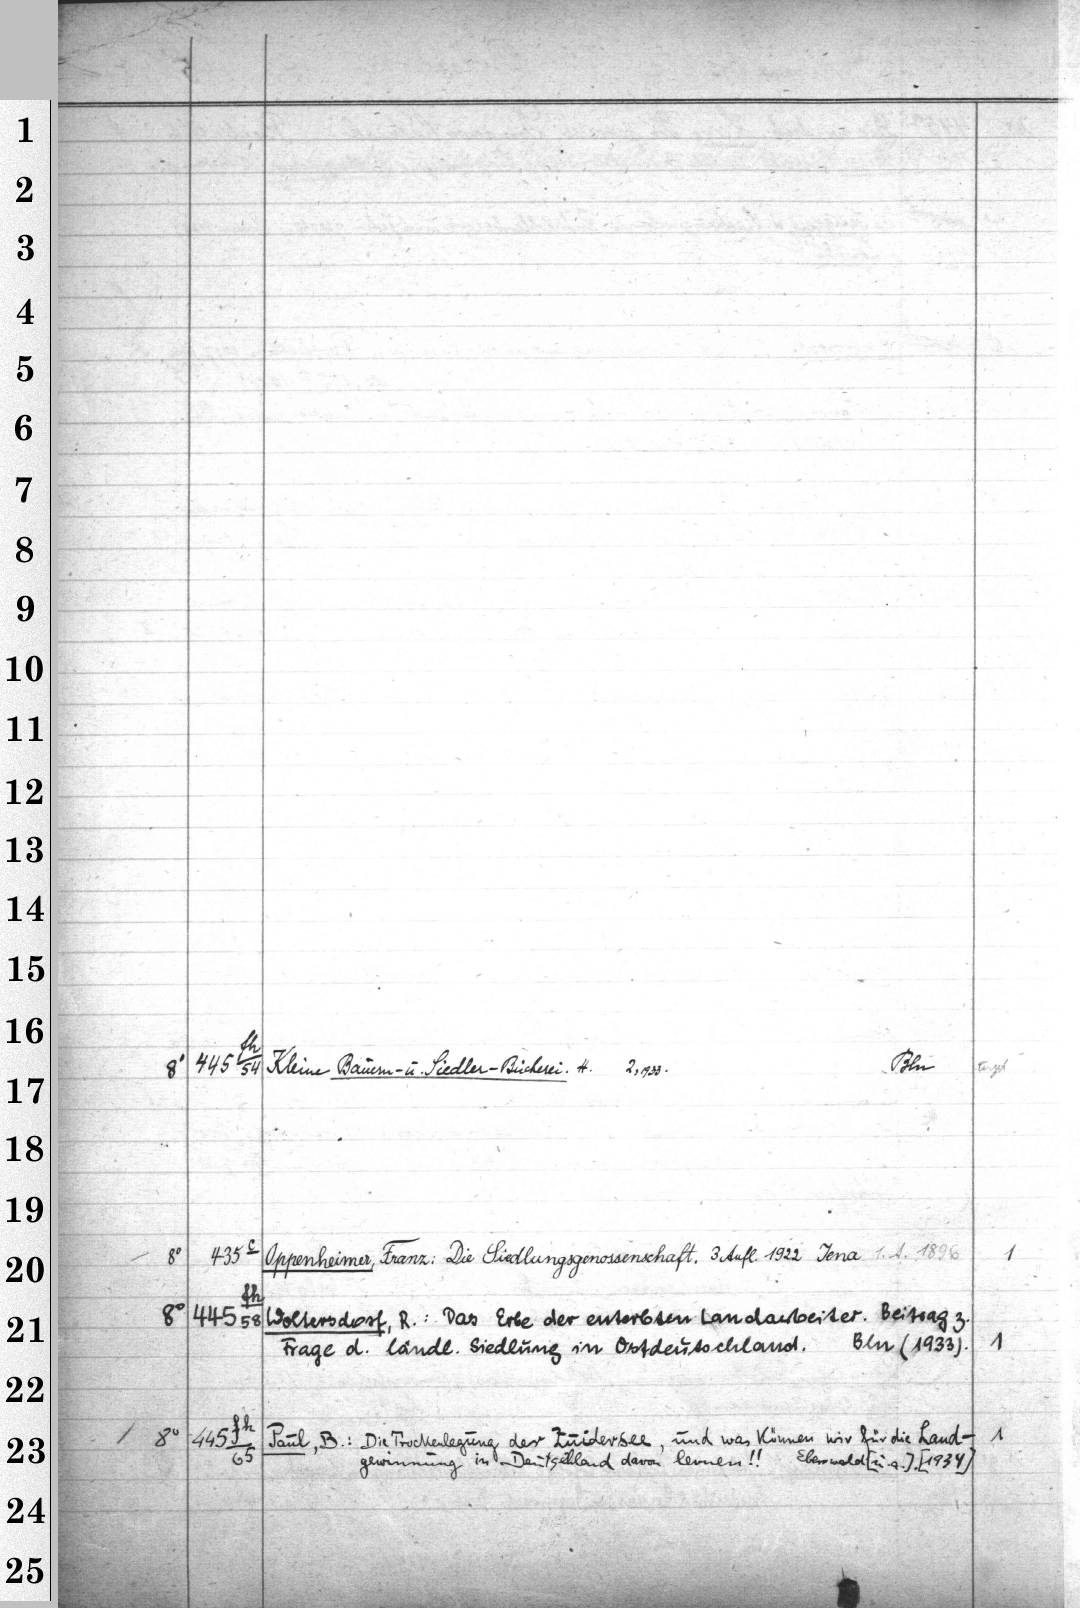 1
2
3
4
5
6
7
8
9
10
11
12
13
14
15
16
8° 445 fh/54 Kleine Bauern- u. Siedler-Bücherei. H. 2,1933. Bln
17
18
19
8° 435 c Oppenheimer, Franz: Die Siedlungsgenossenschaft. 3. Aufl. 1922 Jena 1. A. 1896 1
20
8° 445 fh/58 Woltersdorf, R.: Das Erbe der enterbten Landarbeiter. Beitrag z.
21
Frage d. ländl. Siedlung in Ostdeutschland. Bln (1933). 1
22
/ 8° 445 fh/65 Paul, B.: Die Trockenlegung der Zuidersee, und was können wir für die Land- 1
23
gewinnung in Deutschland davon lernen!! Eberswald [u. a.]. [1934]
24
25